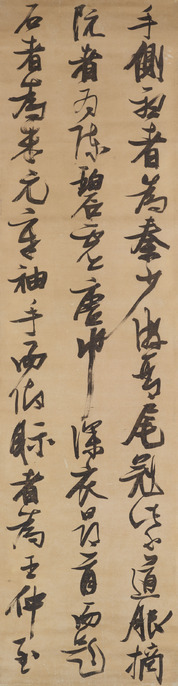 手側聽者為秦少游琴尾冠紫道服摘
阮者為陳碧虛唐巾深衣昂首而題
石者為米元章袖手而仰眎者為王仲至